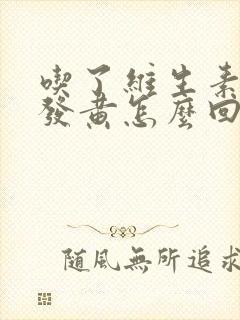 喫了維生素
發黄怎麼回
隨風無所追求